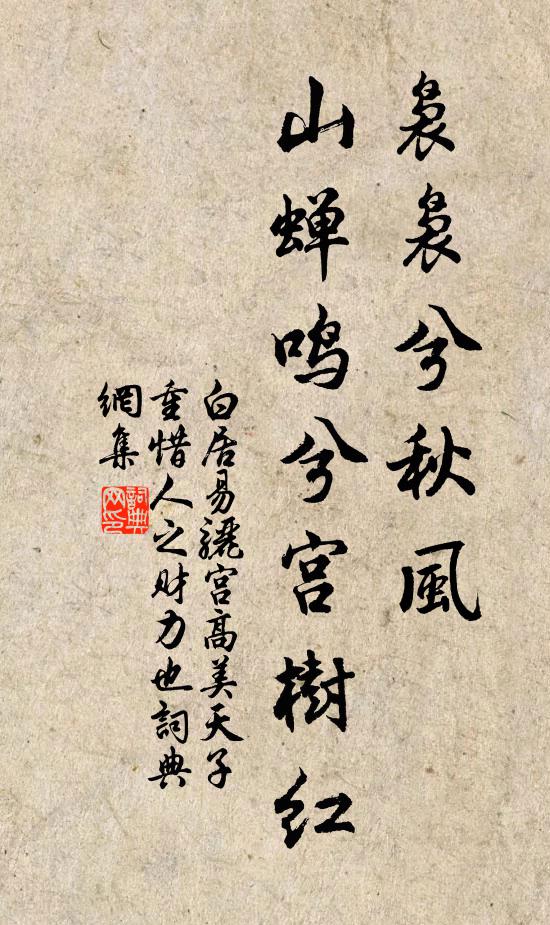 袅袅兮秋風
山蝉鸣兮宫樹红
白居易驪宫高美天子
重惜人之财力也詞典
網集
詞典
网印